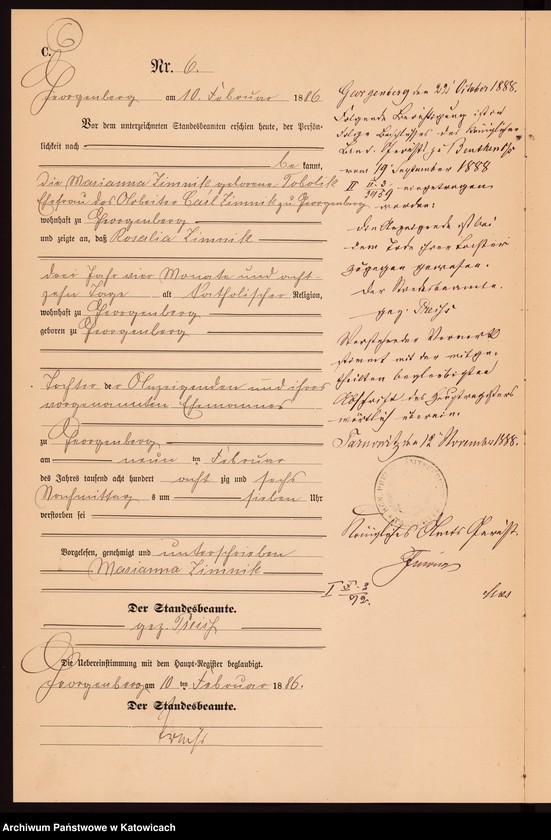 C.
6
Nr. 6.
Georgenberg am 10. Februar 1886
Vor dem unterzeichneten Standesbeamten erschien heute, der Persön-
lichkeit nach
be kannt,
die Marianna Zimnik geborene Tobolik
Ehefrau des Arbeiter Carl Zimnik zu Georgenberg
wohnhaft zu Georgenberg
und zeigte an, daß Rosalia Zimnik
drei Jahr vier Monate und acht-
zehn Tage alt Katholischer Religion,
wohnhaft zu Georgenberg
geboren zu Georgenberg
Tochter der Anzeigenden und ihres
vorgenannten Ehemannes
zu Georgenberg
am neun ten Februar
des Jahres tausend acht hundert acht zig und sechs
Nachmittag s um sieben Uhr
verstorben sei
Vorgelesen, genehmigt und unterschrieben
Marianna Zimnik
Der Standesbeamte.
gez. Preiß
Die Uebereinstimmung mit dem Haupt-Register beglaubigt.
Georgenberg am 10 ten Februar 1886.
Der Standesbeamte.
Preiß
Georgenberg den 22 October 1888.
Folgende Berichtigung ist in
Folge Beschlusses des Königlichen
Land-Gerichts zu Beuthen O/S
vom 19 September 1888
eingetragen
worden:
die Anzeigende ist bei
dem Tode ihrer Tochter
zugegen gewesen.
Der Standesbeamte.
gez. Preiß
Vorstehender Vermerk
stimmt mit der mitge-
theilten beglaubigten
Abschrift des Hauptregisters
wörtlich überein.
Tarnowitz den 12 November 1888.
Königliches Amts Gericht.
Archiwum Państwowe w Katowicach